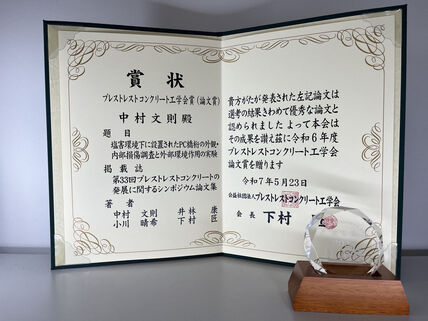 賞状
プレストレストコンクリート工学会賞(論文賞)
中村文則殿
題目
塩害環境下に設置されたPC橋桁の外観・
内部損傷調査と外部環境作用の実験
掲載誌
第33回プレストレストコンクリートの
発展に関するシンポジウム論文集
著者
中村 文則 井林 康
小川 晴希 下村 匠
貴方がたが発表された左記論文は
選考の結果きわめて優秀な論文と
認められました よって本会は
その成果を讃え茲に令和6年度
プレストレストコンクリート工学会
論文賞を贈ります
令和7年5月23日
公益社団法人プレストレストコンクリート工学会
会長 下村